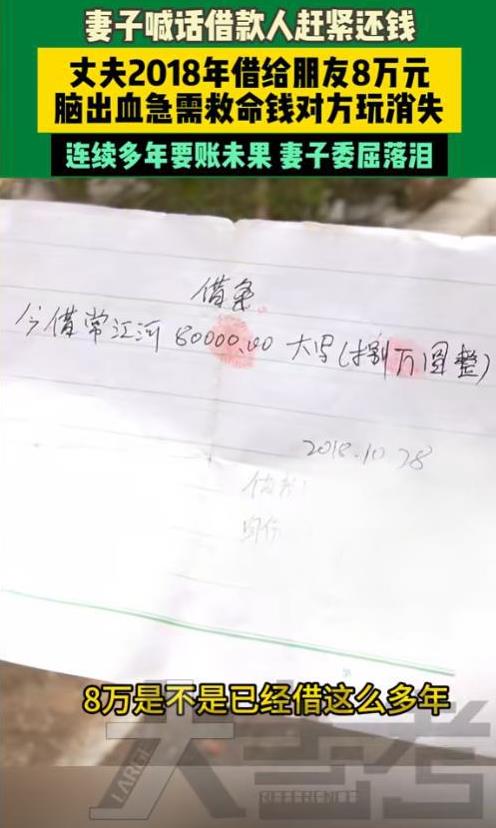 妻子喊话借款人赶紧还钱
丈夫2018年借给朋友8万元
脑出血急需救命钱对方玩消失
连续多年要账未果 妻子委屈落泪
借条
今借常江河 80000.00 大写(捌万圆整)
2018.10.28
8万是不是已经借这么多年
大参考
LARGE
REFERENCE